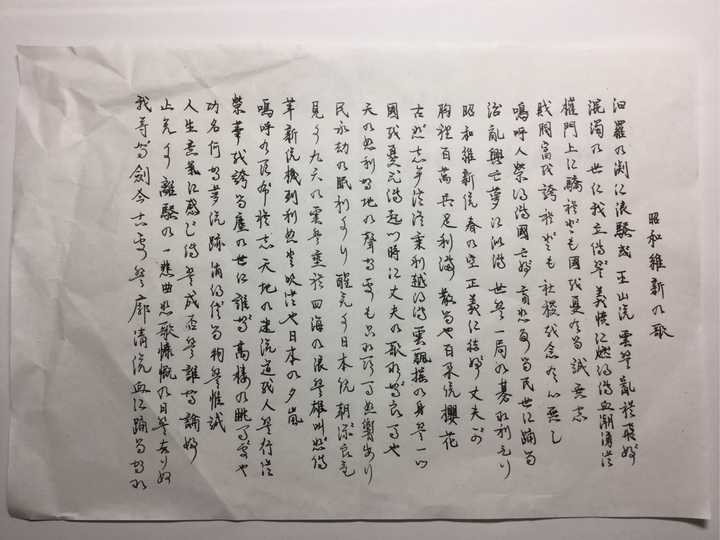 昭和維新の歌
汨羅の渕に浪騒ぎ 巫山の雲は乱れ飛ぶ
混濁の世に我立てば 義憤に燃えて血潮湧く
権門上に驕れども 國を憂ふる誠無し
財閥富を誇れども 社稷を念ふ心無し
嗚呼人榮え國亡ぶ 盲たる民世に踊る
治亂興亡夢に似て 世は一局の碁なりけり
昭和維新の春の空 正義に結ぶ丈夫が
胸裡百萬兵足りて 散るや万朶の櫻花
古びし死骸乗り越えて 雲飄揺の身は一つ
國を憂ひて起つ時に 丈夫の歌なからめや
天の怒りか地の聲か そもただならぬ響あり
民永劫の眠りより 醒めよ日本の朝ぼらけ
見よ九天の雲は垂れ 四海の浪は雄叫びて
革新の機到りぬと 吹くや日本の夕嵐
嗚呼うらぶれし天地の 迷の道を人はゆく
榮華を誇る塵の世に 誰が高楼の眺めぞや
功名何か夢の跡 消えざるものはただ誠
人生意氣に感じては 成否を誰か論ふ
止めよ離騒の一悲曲 悲歌慷慨の日は去りぬ
我等が剣今こそは 廓清の血に踊るかな